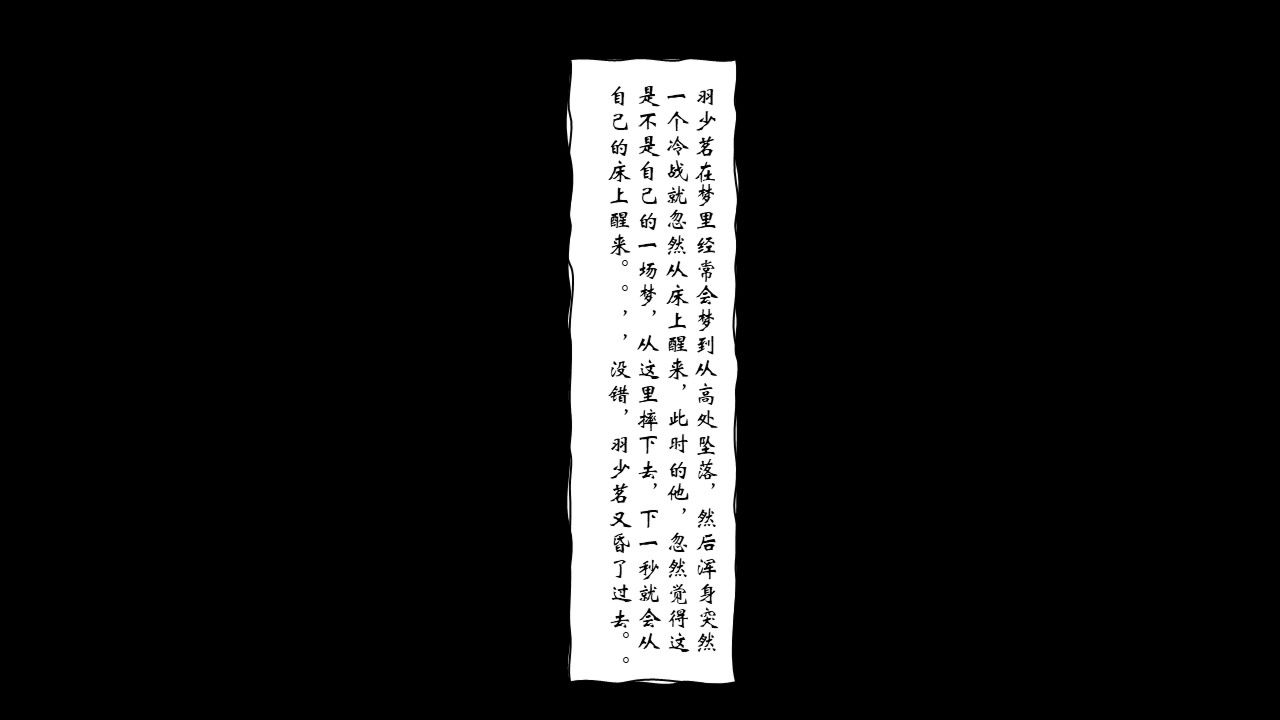 羽少茗在梦里经常会梦到从高处坠落，然后浑身突然
一个冷战就忽然从床上醒来，此时的他，忽然觉得这
是不是自己的一场梦，从这里摔下去，下一秒就会从
自己的床上醒来。。，，没错，羽少茗又昏了过去。。